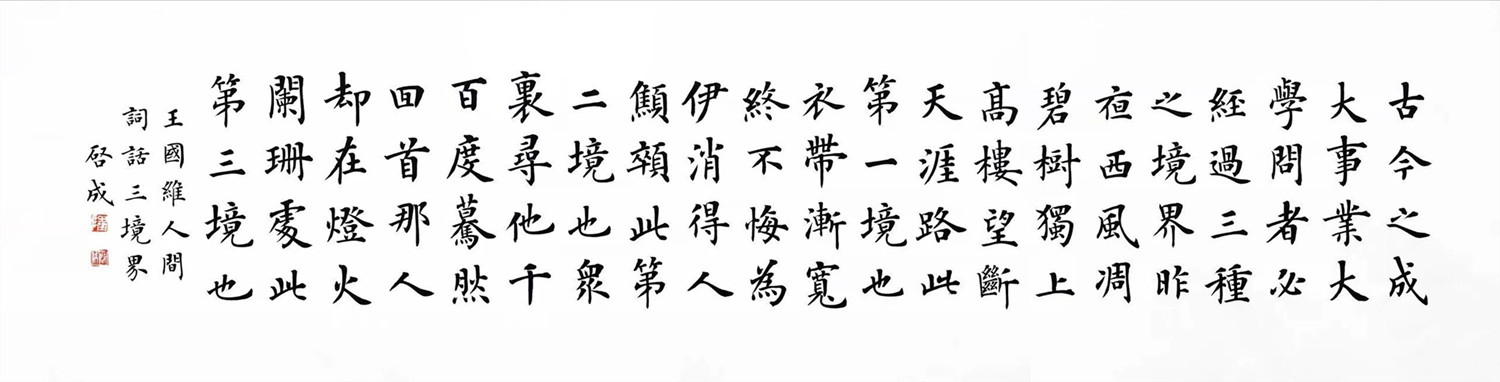 古今之成
大事業大
學問者必
經過三種
之境界昨
亱西風凋
碧樹獨上
髙樓望斷
天涯路此
第一境也
衣帶漸寬
終不悔為
伊消得人
顦顇此第
二境也衆
裏尋他千
百度驀然
回首那人
却在燈火
闌珊處此
第三境也
王國維人間
詞話三境界
启成